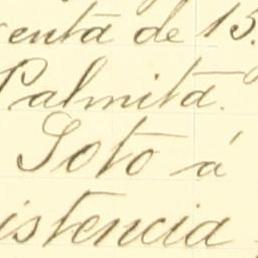 enta de 15.
Palmita.
Soto á
istencia